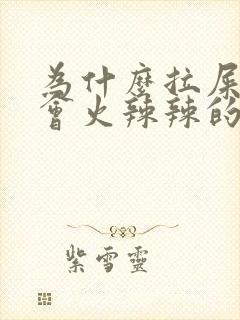 為什麼拉屎
會火辣辣的
紫雪靈